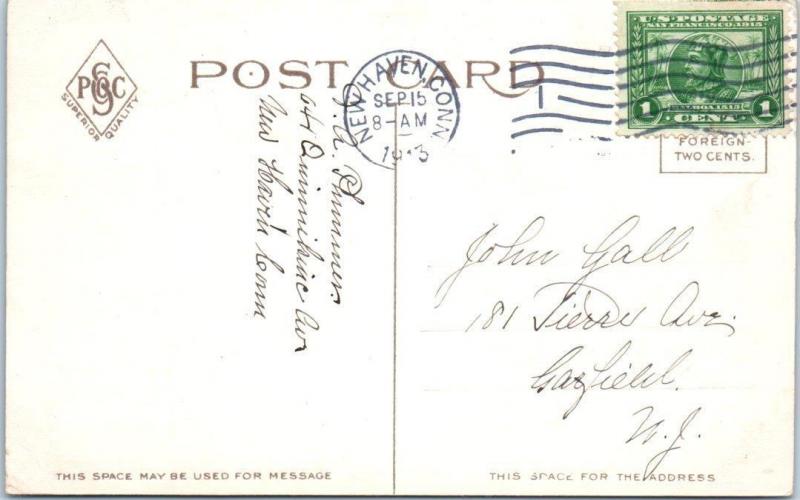 PGC
S
SUPERIOR QUALITY
POST CARD
NEW HAVEN, CONN.
SEP 15
8-AM
1913
U.S. POSTAGE
SAN FRANCISCO 1915
BALBOA 1513
1 CENT 1
FOREIGN-
TWO CENTS.
Plummer.
64 Quinnihiac Ave
New Haven Conn
John Gall
181 Pierre Ave.
Garfield.
N.J.
THIS SPACE MAY BE USED FOR MESSAGE
THIS SPACE FOR THE ADDRESS